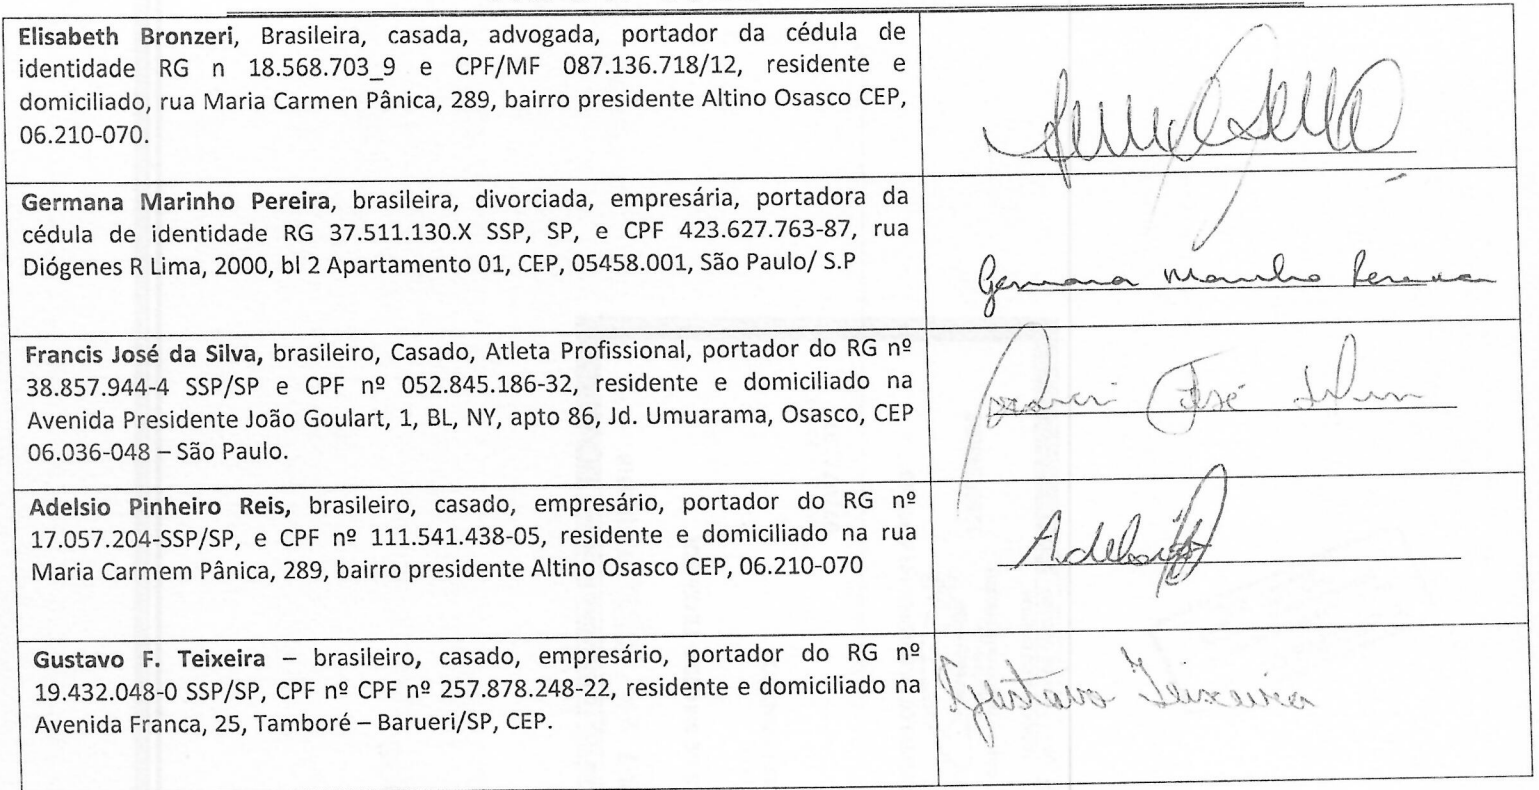 Elisabeth Bronzeri, Brasileira, casada, advogada, portador da cédula de
identidade RG n 18.568.703_9 e CPF/MF 087.136.718/12, residente e
domiciliado, rua Maria Carmen Pânica, 289, bairro presidente Altino Osasco CEP,
06.210-070.
Germana Marinho Pereira, brasileira, divorciada, empresária, portadora da
cédula de identidade RG 37.511.130.X SSP, SP, e CPF 423.627.763-87, rua
Diógenes R Lima, 2000, bl 2 Apartamento 01, CEP, 05458.001, São Paulo/ S.P
Germana Marinho Pereira
Francis José da Silva, brasileiro, Casado, Atleta Profissional, portador do RG nº
38.857.944-4 SSP/SP e CPF nº 052.845.186-32, residente e domiciliado na
Avenida Presidente João Goulart, 1, BL, NY, apto 86, Jd. Umuarama, Osasco, CEP
06.036-048 – São Paulo.
José
Adelsio Pinheiro Reis, brasileiro, casado, empresário, portador do RG nº
17.057.204-SSP/SP, e CPF nº 111.541.438-05, residente e domiciliado na rua
Maria Carmem Pânica, 289, bairro presidente Altino Osasco CEP, 06.210-070
Gustavo F. Teixeira – brasileiro, casado, empresário, portador do RG nº
19.432.048-0 SSP/SP, CPF nº CPF nº 257.878.248-22, residente e domiciliado na
Avenida Franca, 25, Tamboré – Barueri/SP, CEP.
Gustavo Teixeira